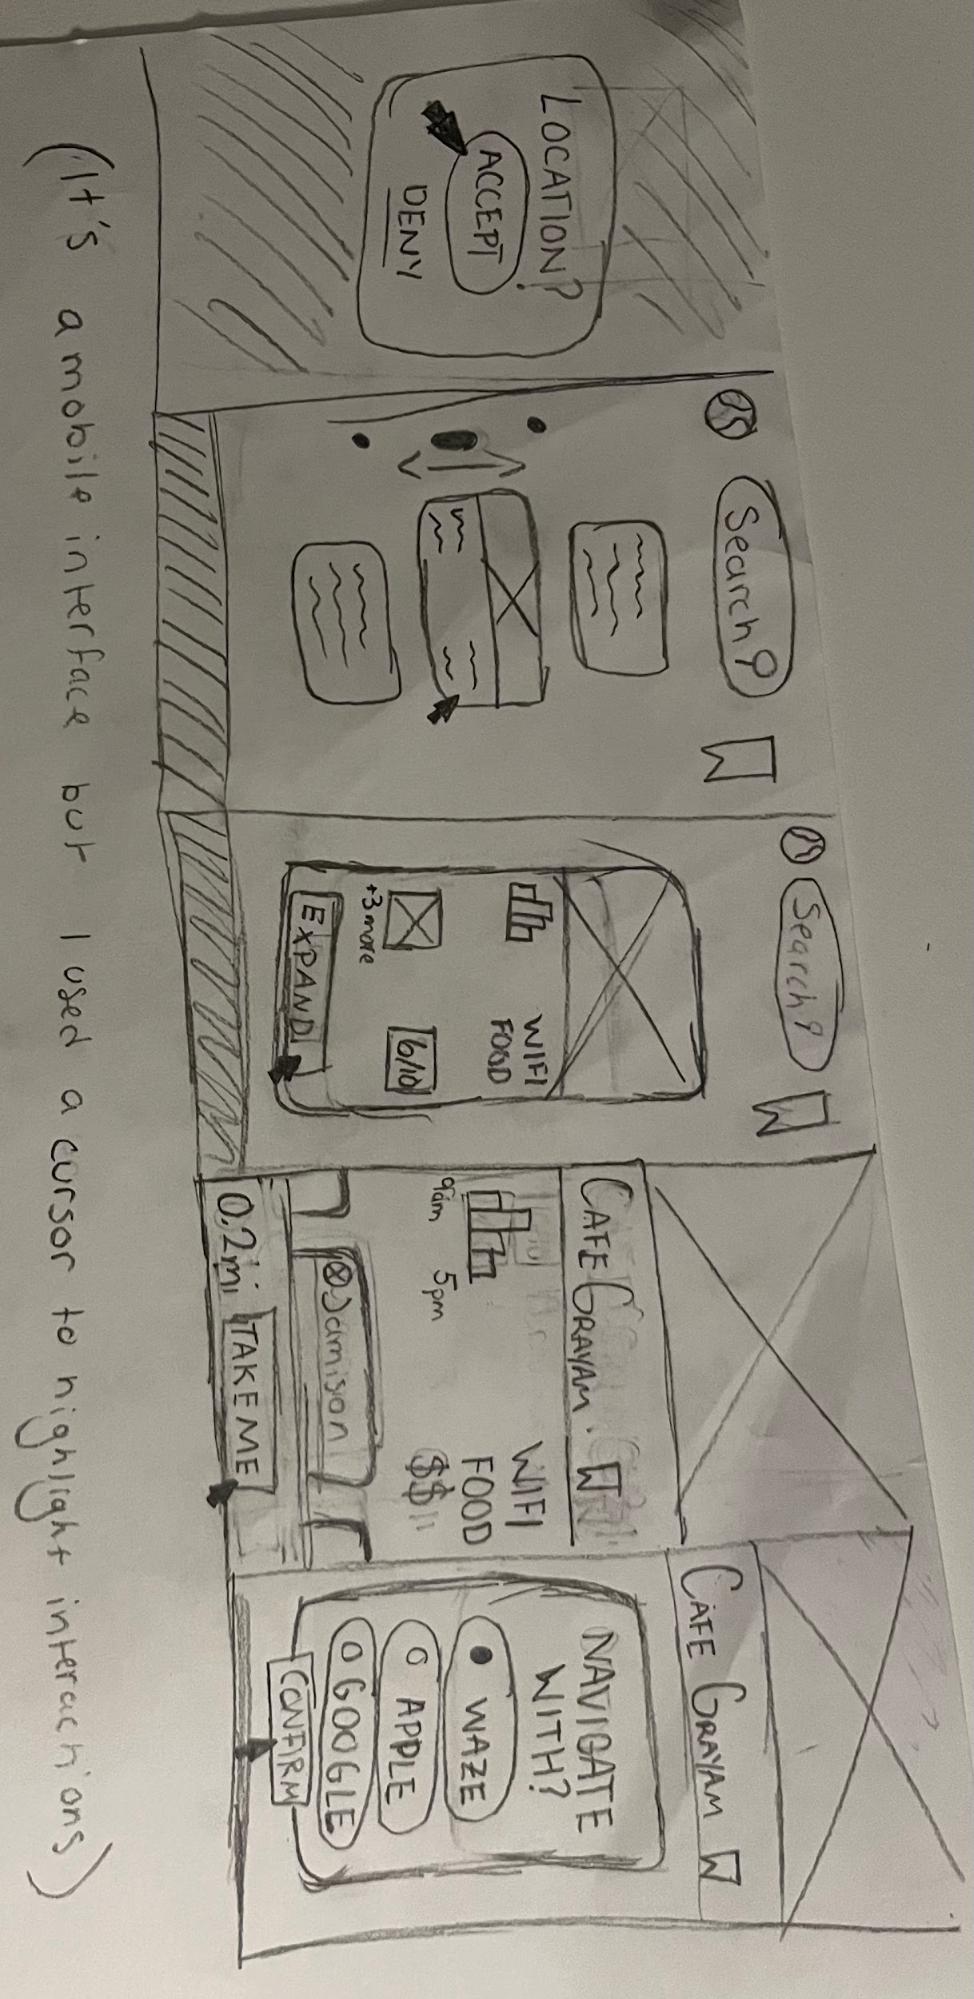 LOCATION?
ACCEPT
DENY
Search
Search
WIFI
FOOD
+3 more
6/10
EXPAND
CAFE GRAYAM
9am
5pm
WIFI
FOOD
$$
Jamison
0.2mi
TAKE ME
CAFE GRAYAM
NAVIGATE
WITH?
WAZE
APPLE
GOOGLE
CONFIRM
(It's a mobile interface but I used a cursor to highlight interactions)